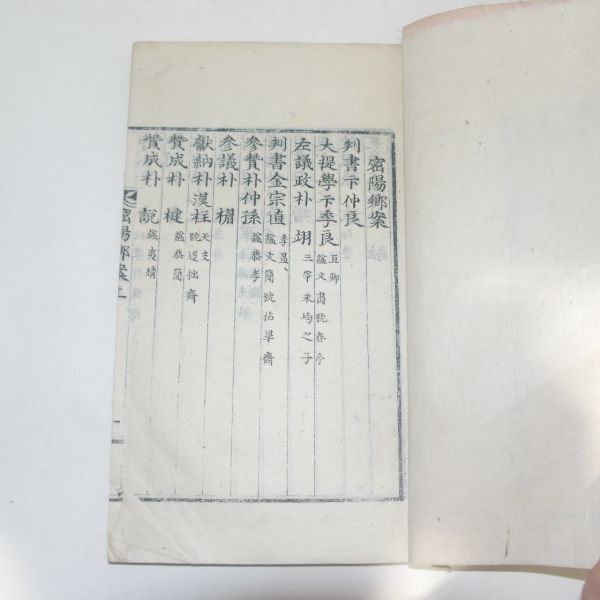 密陽鄕案
判書卞仲良
大提學卞季良 巨卿 諡文肅號春亭
左議政朴翊 三宰永均之子
判書金宗直 季昷 諡文簡號佔畢齋
參贊朴仲孫 諡恭孝
參議朴楣
獻納朴漢柱 天支 號迂拙齋
贊成朴楗 諡恭簡
贊成朴說 諡夷靖
密陽鄕案